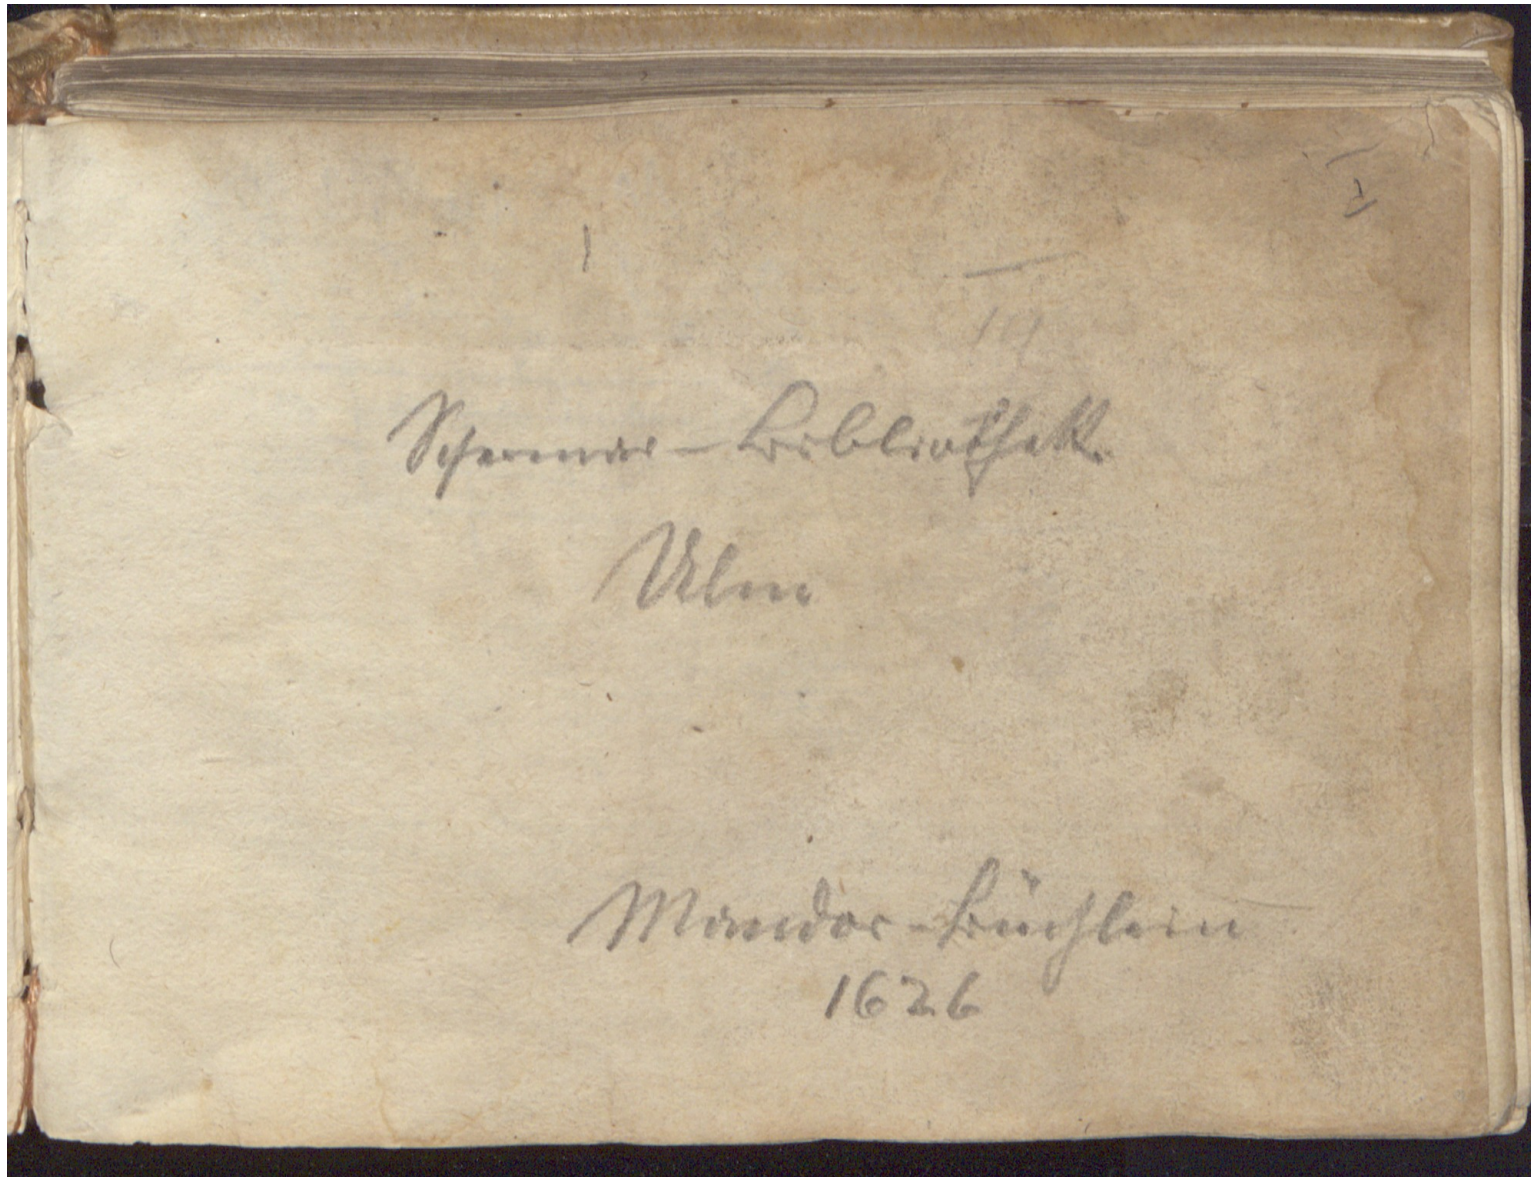 I
Schermar-Bibliothek
Ulm
Mandor-Büchlein
1626